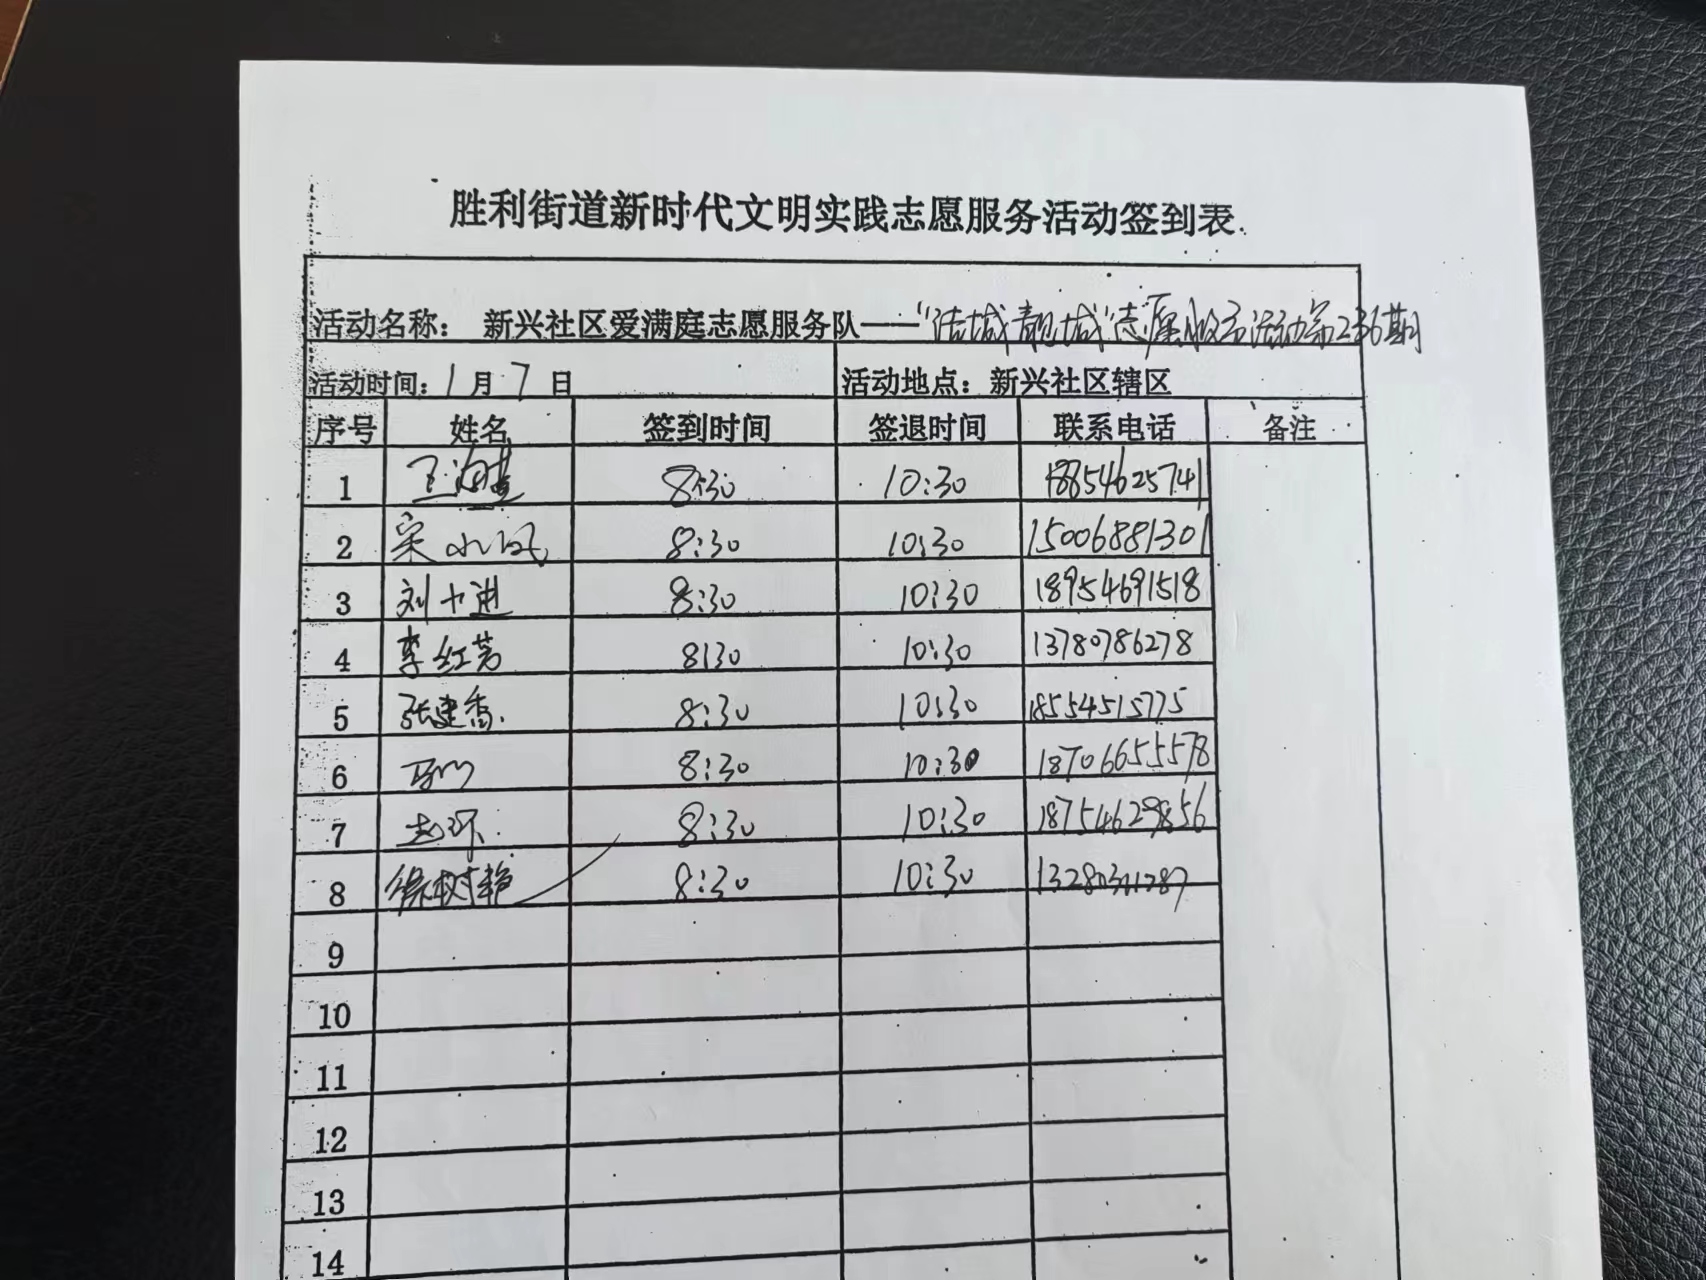 胜利街道新时代文明实践志愿服务活动签到表
活动名称： 新兴社区爱满庭志愿服务队——“洁城靓城”志愿服务活动第236期
活动时间：1月7日 活动地点：新兴社区辖区
序号 姓名 签到时间 签退时间 联系电话 备注
1 8:30 10:30 18854625741
2 宋小风 8:30 10:30 15006881301
3 刘 8:30 10:30 18954691518
4 李红芳 8:30 10:30 13780786278
5 张建香 8:30 10:30 18554515775
6 8:30 10:30 18706655578
7 赵环 8:30 10:30 18754629856
8 徐树艳 8:30 10:30
9
10
11
12
13
14